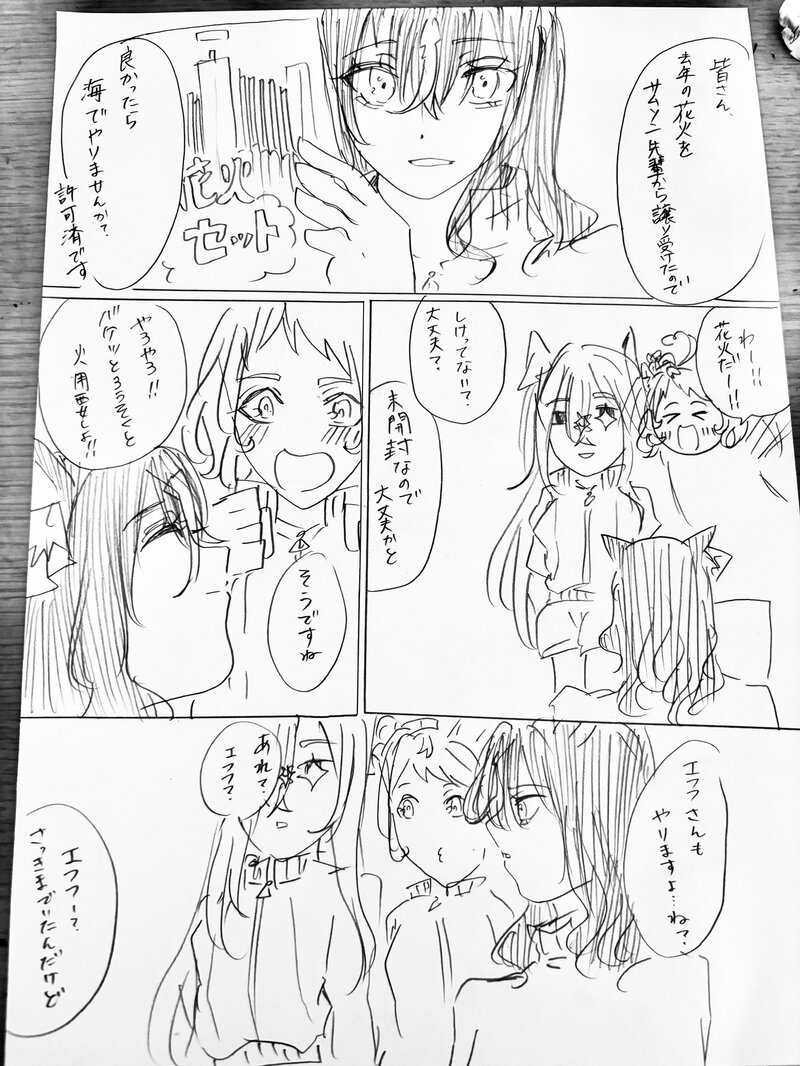 皆さん、
去年の花火を
サムソン先輩から譲り受けたので
良かったら
海でやりませんか？
許可済です
花火
セット
わー!!
花火だー!!
しけってない？
大丈夫？
未開封なので
大丈夫かと
やろやろ!!
バケツとろうそくと
火用意しよ!!
そうですね
エフフさんも
やりますよ…ね？
あれ？
エフフ？
エフフー？
さっきまでいたんだけど